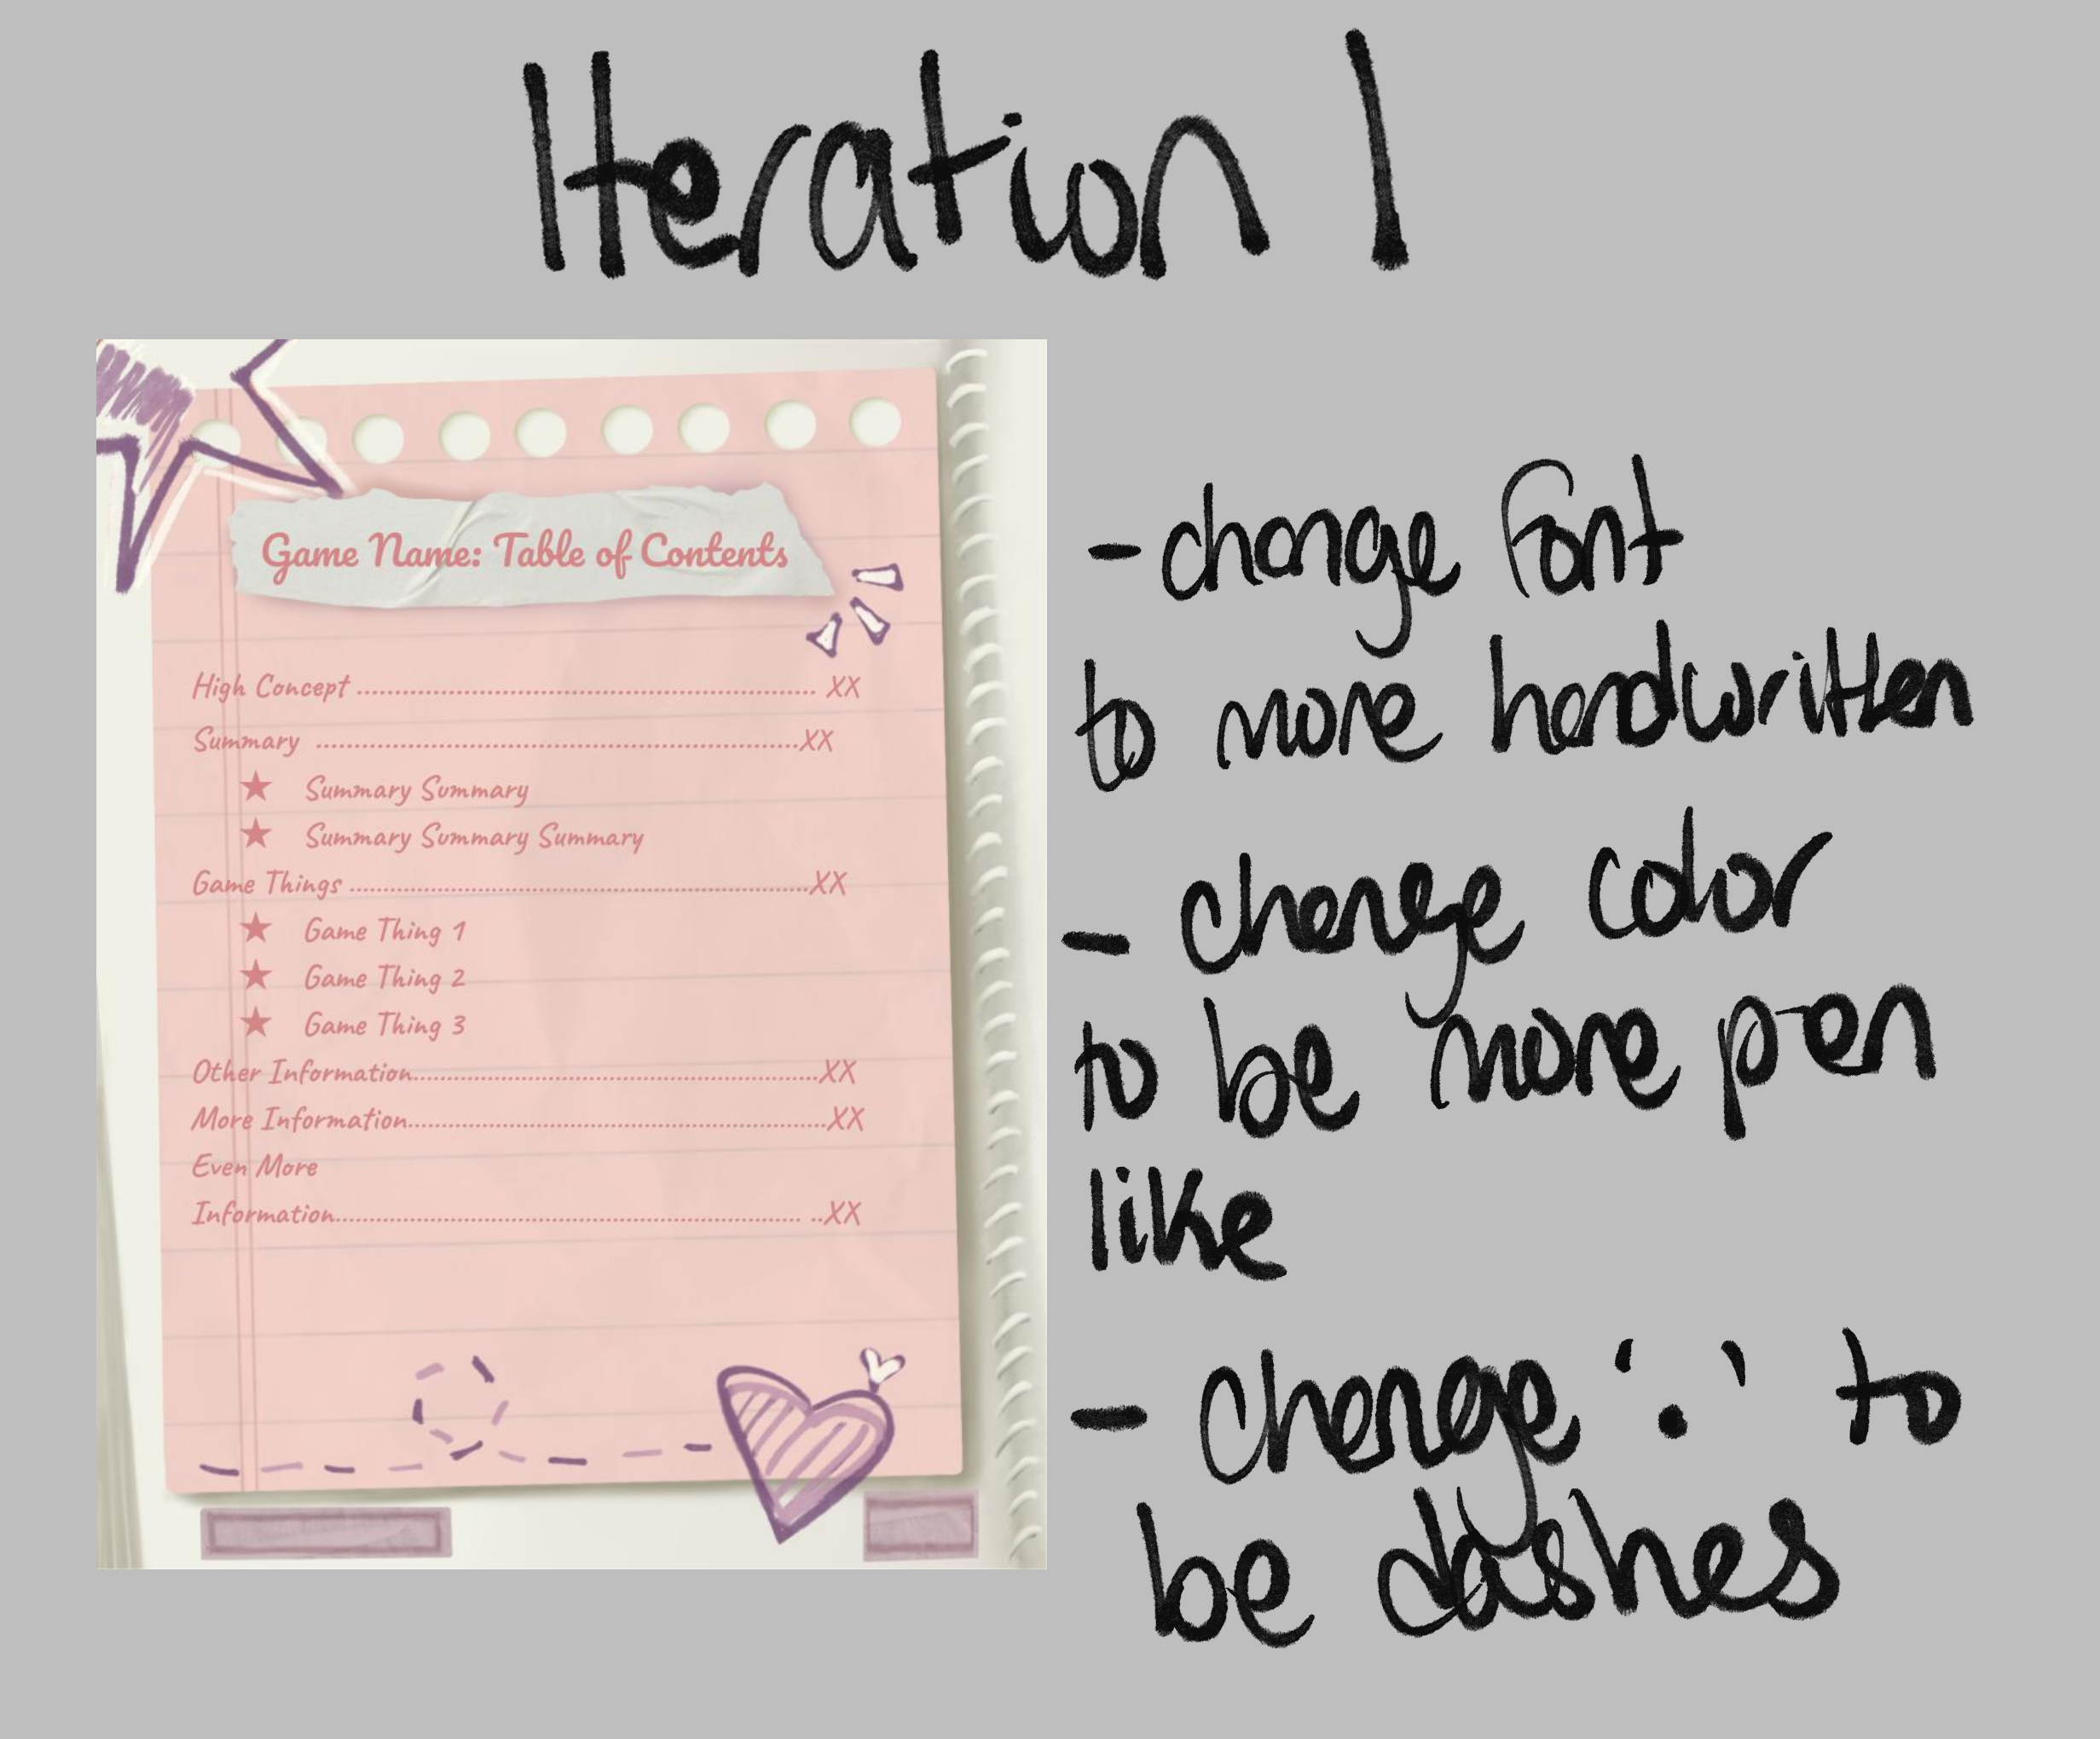 Iteration 1
Game Name: Table of Contents
High Concept ........................................................................ XX
Summary ...........................................................................XX
★ Summary Summary
★ Summary Summary Summary
Game Things ........................................................................XX
★ Game Thing 1
★ Game Thing 2
★ Game Thing 3
Other Information................................................................XX
More Information.................................................................XX
Even More
Information......................................................................... ..XX
- change font
to more handwritten
- change color
to be more pen
like
- change '.' to
be dashes